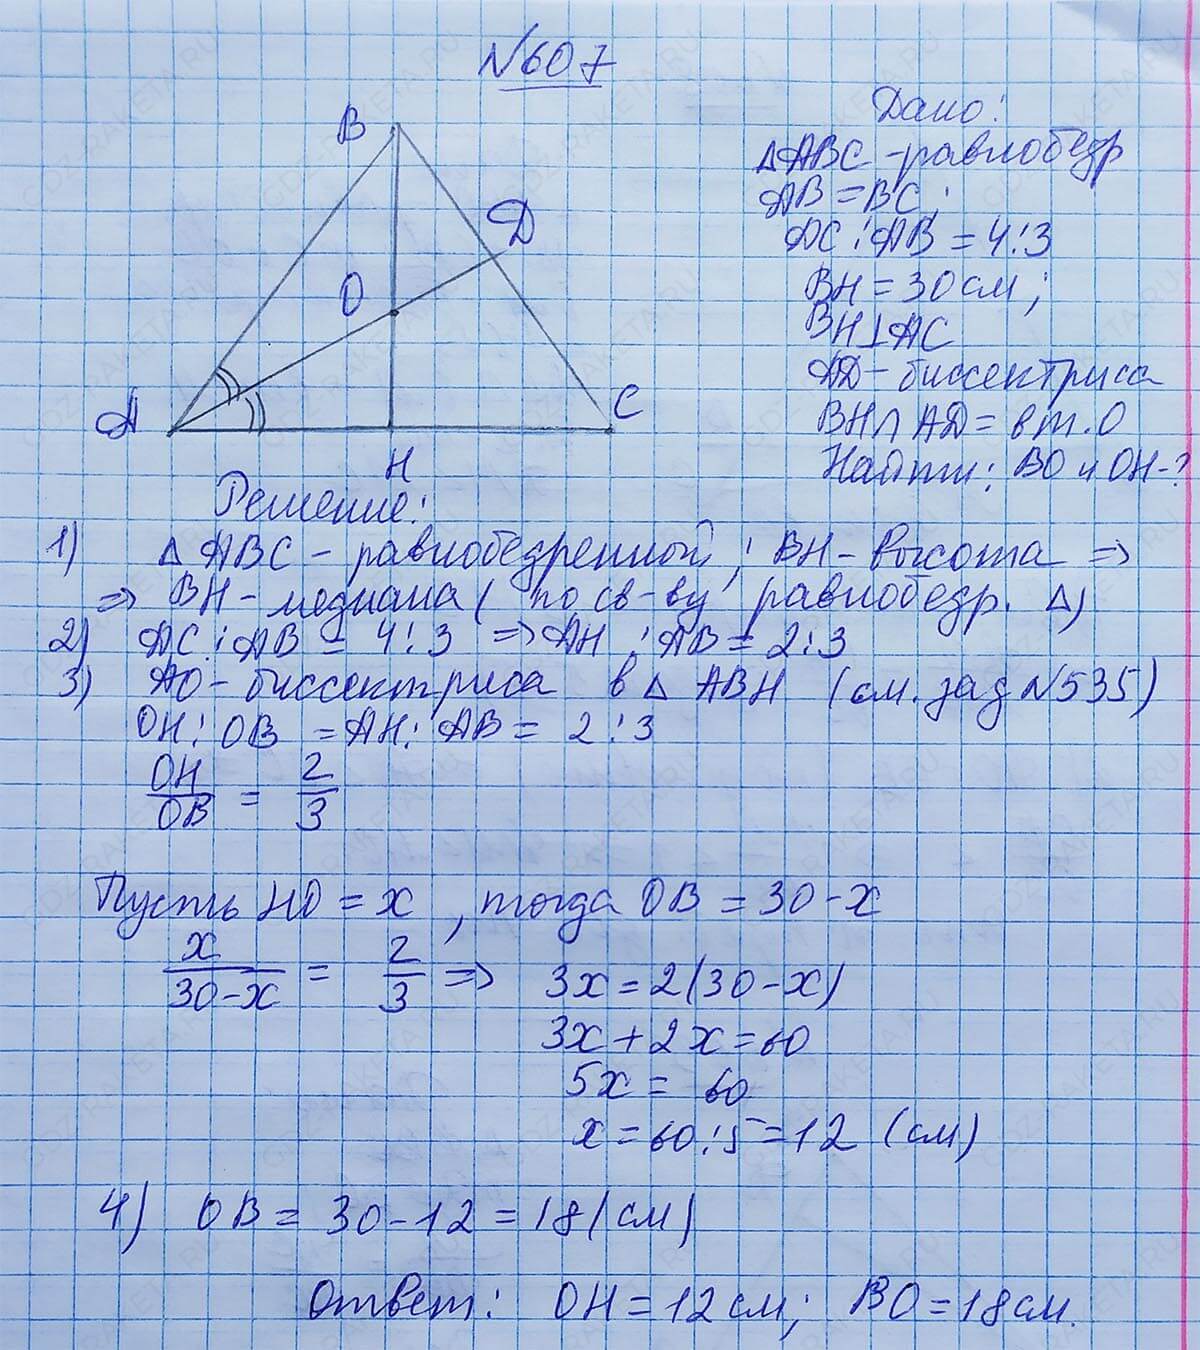 №607
Дано:
△ABC - равнобедр
AB = BC;
AC : AB = 4 : 3
BH = 30 см;
BH ⊥ AC
AD - биссектриса
BH ∩ AD = в т. O
Найти: BO и OH - ?
B
D
O
A
C
H
Решение:
1) △ ABC - равнобедренной; BH - высота =>
=> BH - медиана ( по св-ву равнобедр. △)
2) AC : AB = 4 : 3 => AH : AB = 2 : 3
3) AO - биссектриса в △ ABH (см. зад №535)
OH : OB = AH : AB = 2 : 3
OH/OB = 2/3
Пусть HO = x , тогда OB = 30 - x
x/(30 - x) = 2/3 => 3x = 2(30 - x)
3x + 2x = 60
5x = 60
x = 60 : 5 = 12 (см)
4) OB = 30 - 12 = 18 (см)
Ответ: OH = 12 см; BO = 18 см.
GDZ-RAKETA.RU